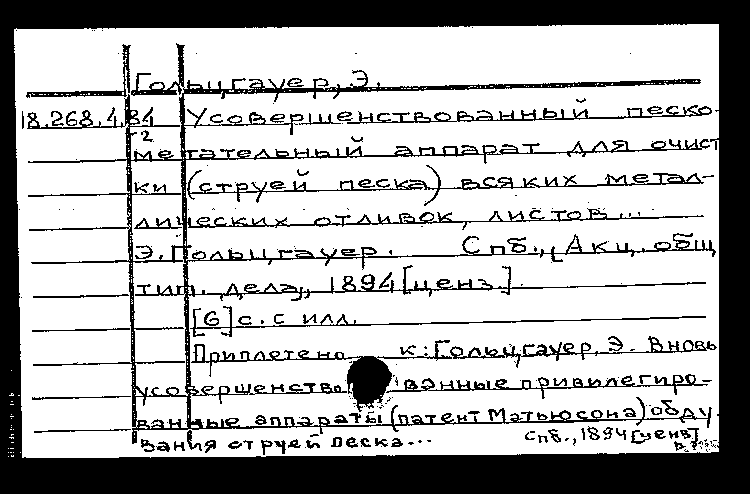 Гольцгауер, Э.
18.268.4.84 Усовершенствованный песко-
-2
метательный аппарат для очист
ки (струей песка) всяких метал-
лических отливок, листов...
Э. Гольцгауер. Спб., [Акц. общ
тип. дела], 1894 [ценз.].
[6] с. с илл.
Приплетено к: Гольцгауер, Э. Вновь
усовершенство ванные привилегиро-
ванные аппараты (патент Мэтьюсона) обду
вания струей песка... Спб., 1894 [ценз]